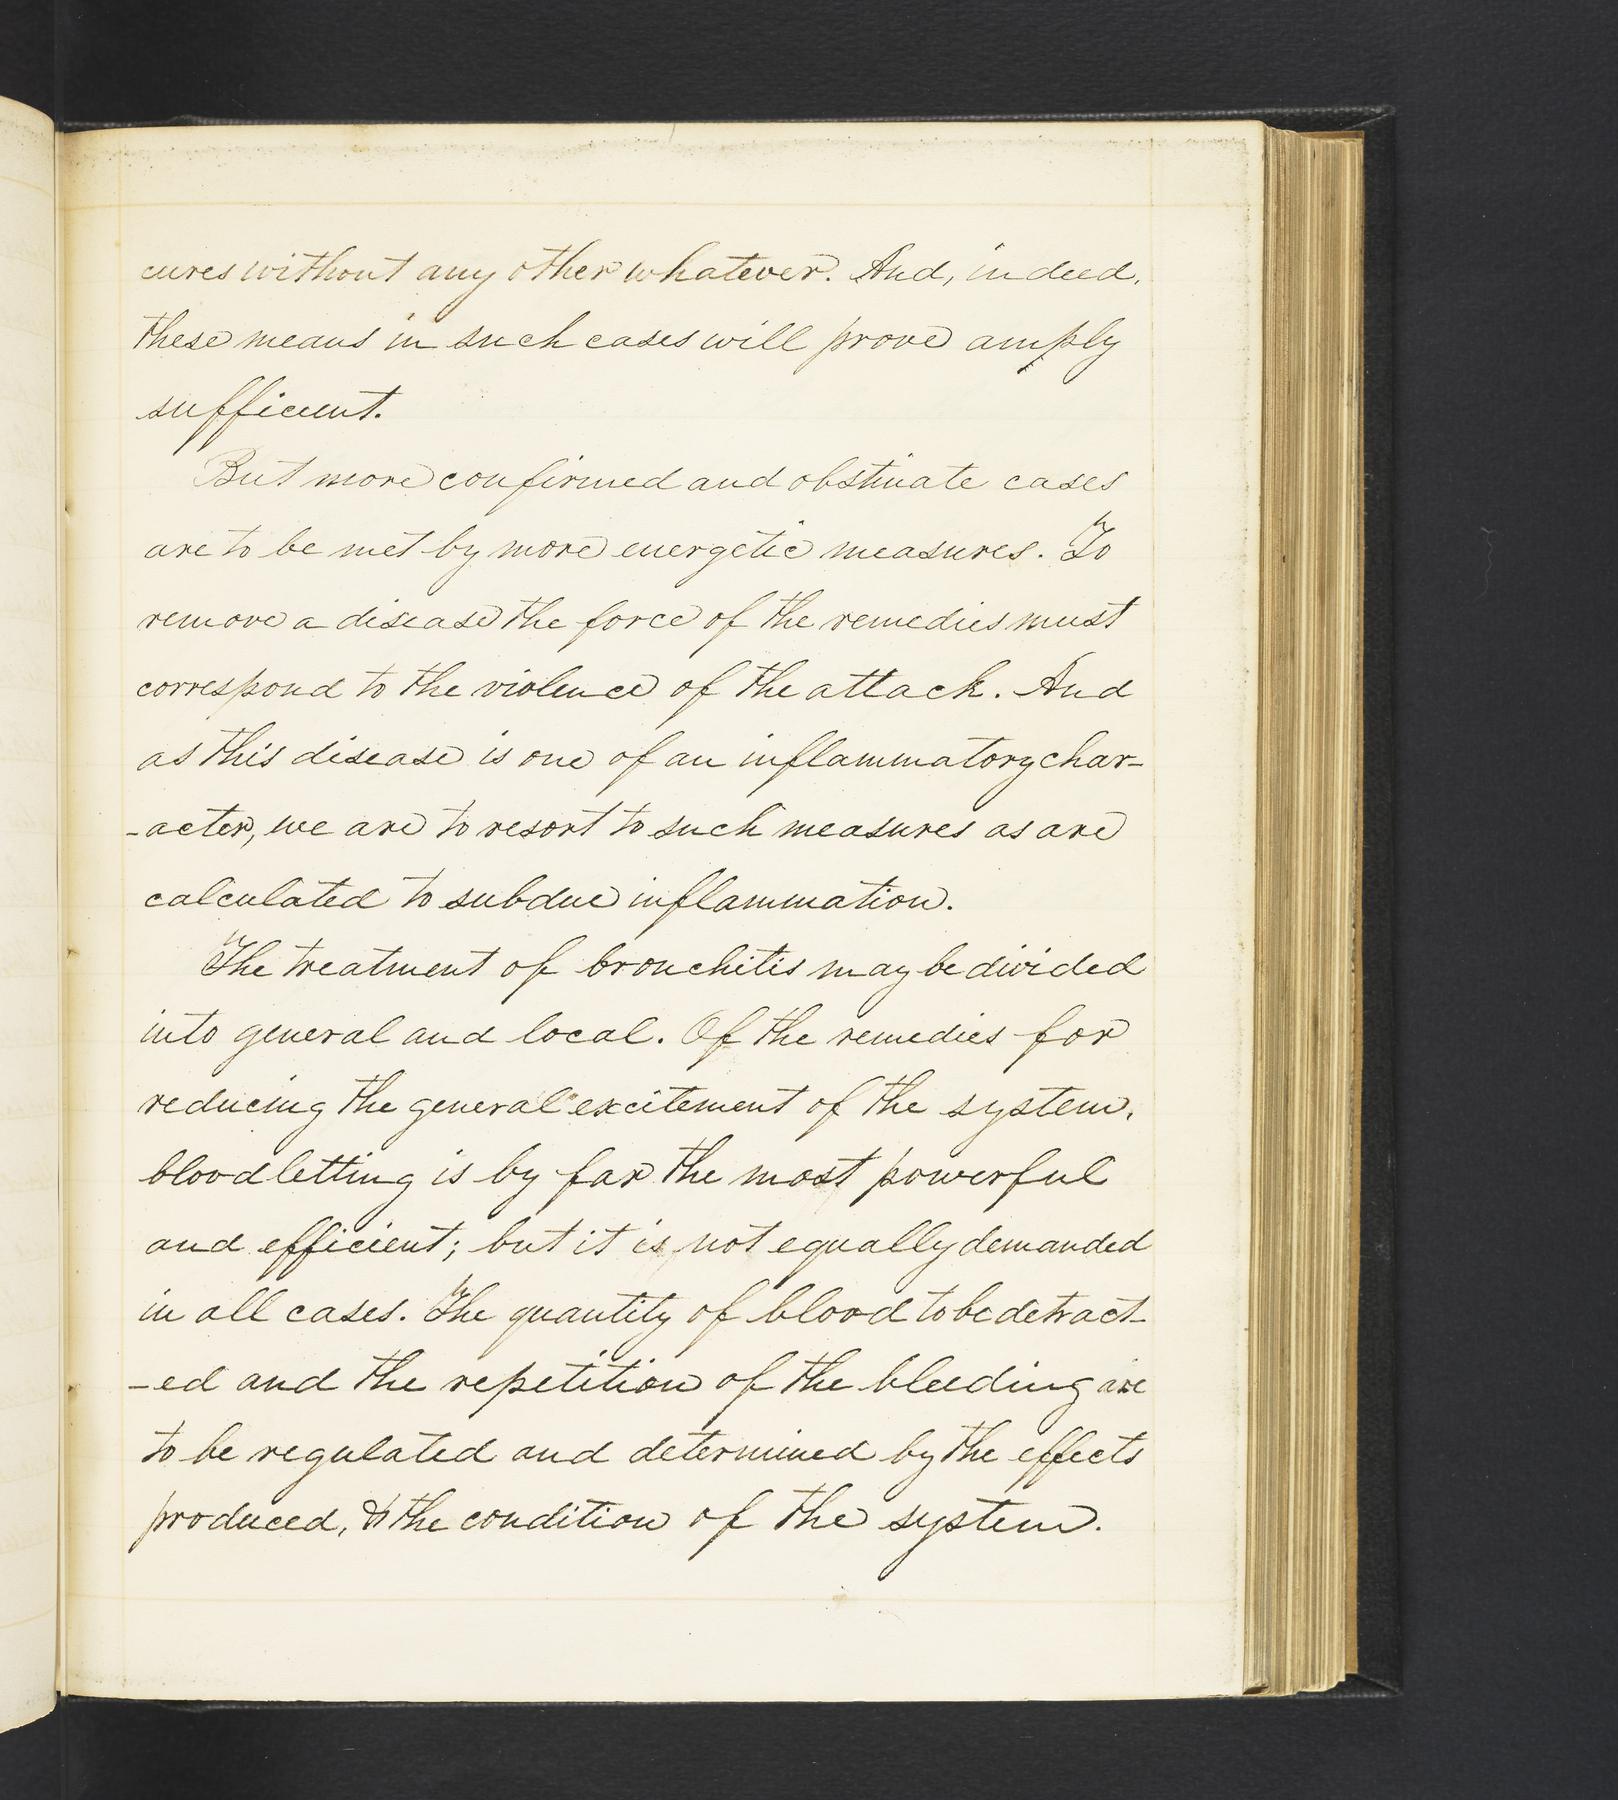 cures without any other whatever. And, indeed,
these means in such cases will prove amply
sufficient.
But more confirmed and obstinate cases
are to be met by more energetic measures. To
remove a disease the force of the remedies must
correspond to the violence of the attack. And
as this disease is one of an inflammatory char-
-acter, we are to resort to such measures as are
calculated to subdue inflammation.
The treatment of bronchitis may be divided
into general and local. Of the remedies for
reducing the general excitement of the system,
bloodletting is by far the most powerful
and efficient; but it is not equally demanded
in all cases. The quantity of blood to be detract-
-ed and the repetition of the bleeding are
to be regulated and determined by the effects
produced, & the condition of the system.